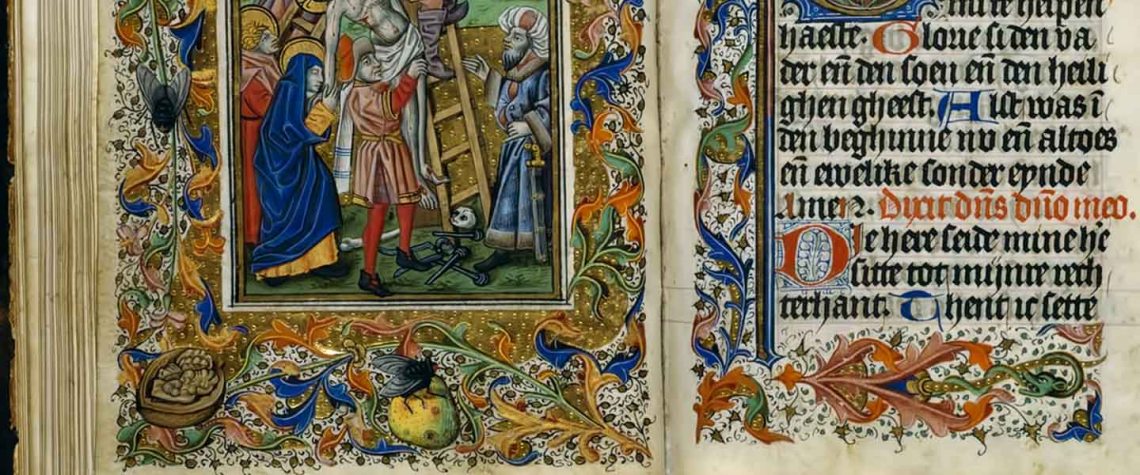 mi te helpen
haeste. Glorie si den va
der en̄ den soen en̄ den heili
ghen gheest. Alst was ī
den beghinne nv en̄ altoes
en̄ ewelike sonder eynde
Amen. Dixit dn̄s dn̄o meo.
Die here seide mine he̅
sitte tot mijnre rech
terhant. Thent ic sette